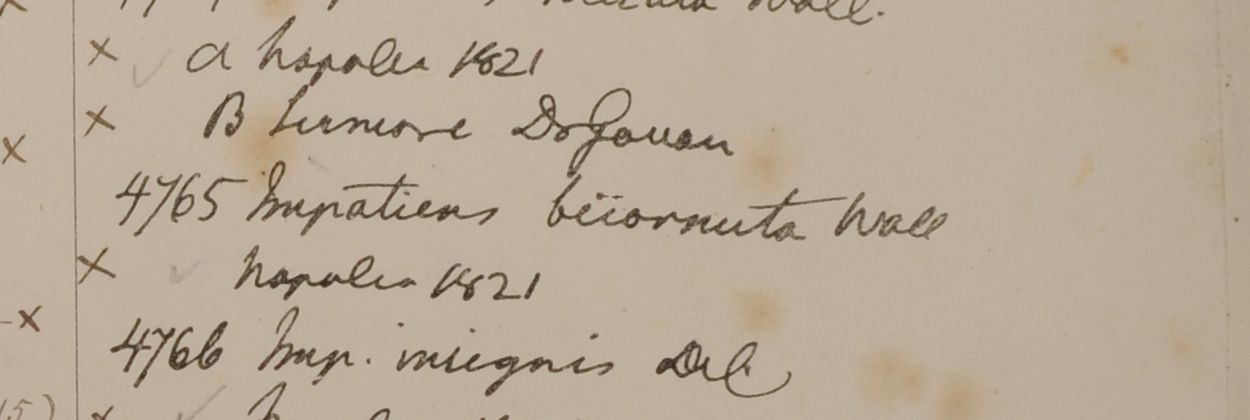 Wall.
x a Napalia 1821
x B Sirmore Dr Govan
x
4765 Impatiens bicornuta Wall
x Napalia 1821
x
4766 Imp. insignis DeC